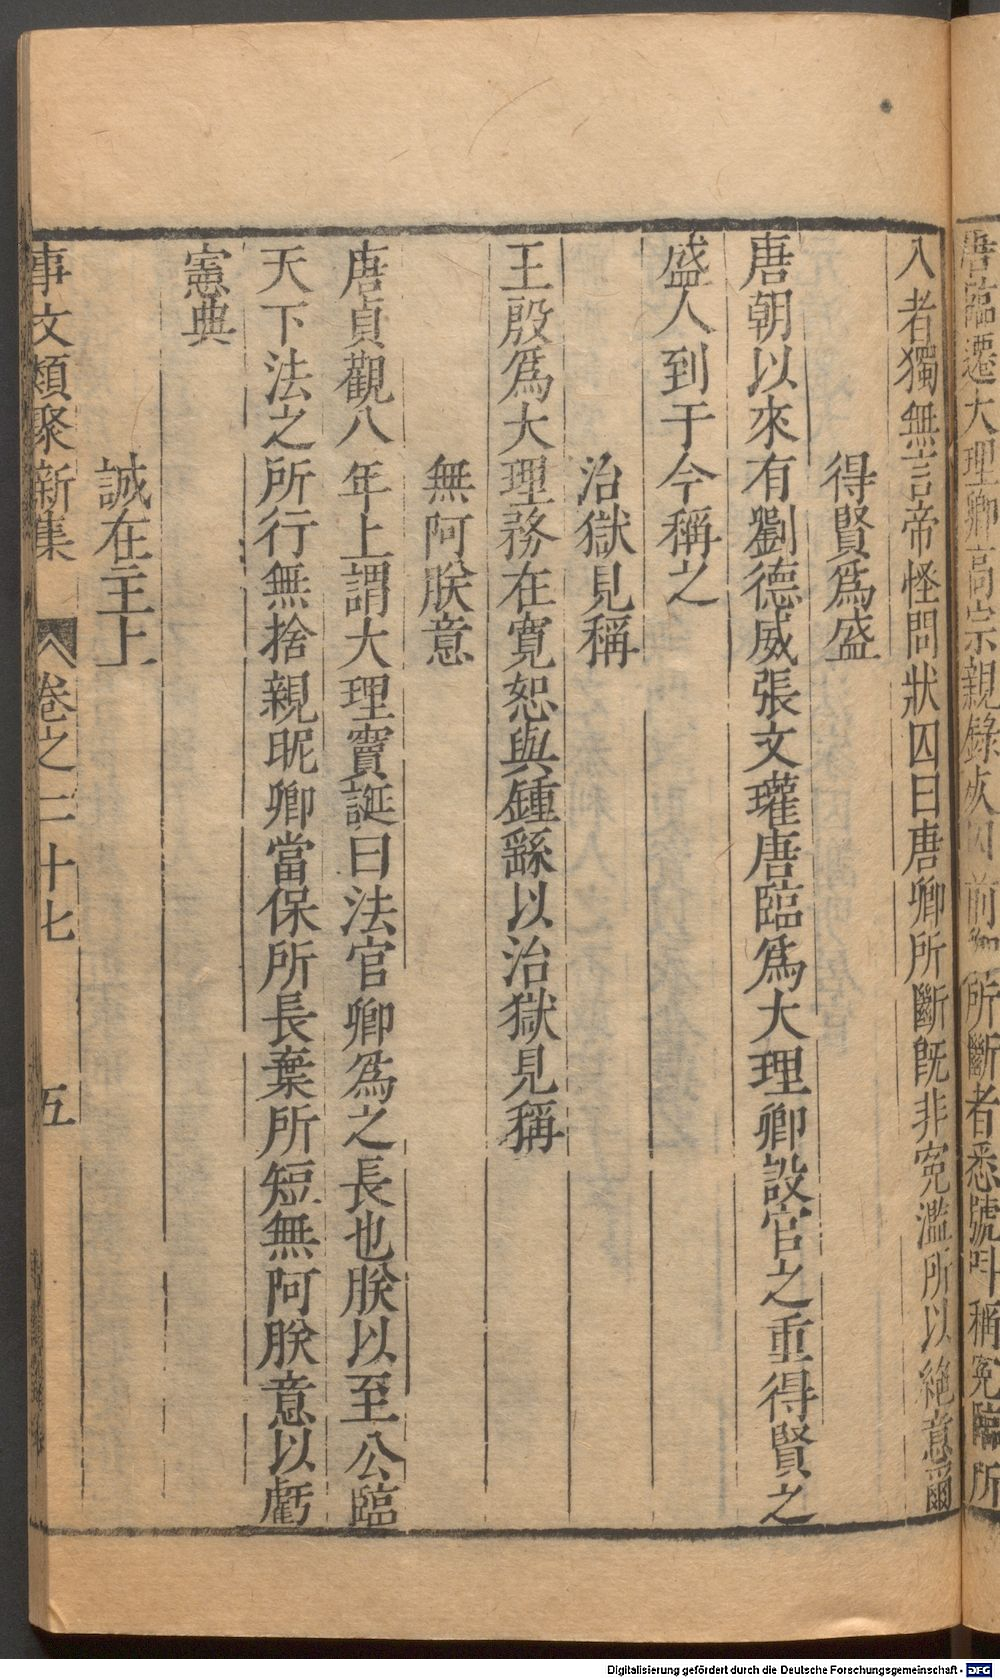 唐臨遷大理卿高宗親錄死囚前卿所斷者悉號叫稱冤臨所
入者獨無言帝怪問狀囚曰唐卿所斷旣非冤濫所以絶意爾
得賢爲盛
唐朝以來有劉德威張文瓘唐臨爲大理卿設官之重得賢之
盛人到于今稱之
治獄見稱
王殷爲大理務在寛恕與鍾繇以治獄見稱
無阿朕意
唐貞觀八年上謂大理竇誕曰法官卿爲之長也朕以至公臨
天下法之所行無捨親昵卿當保所長棄所短無阿朕意以虧
憲典
誠在主上
事文類聚新集 卷之二十七 五
Digitalisierung gefördert durch die Deutsche Forschungsgemeinschaft - DFG